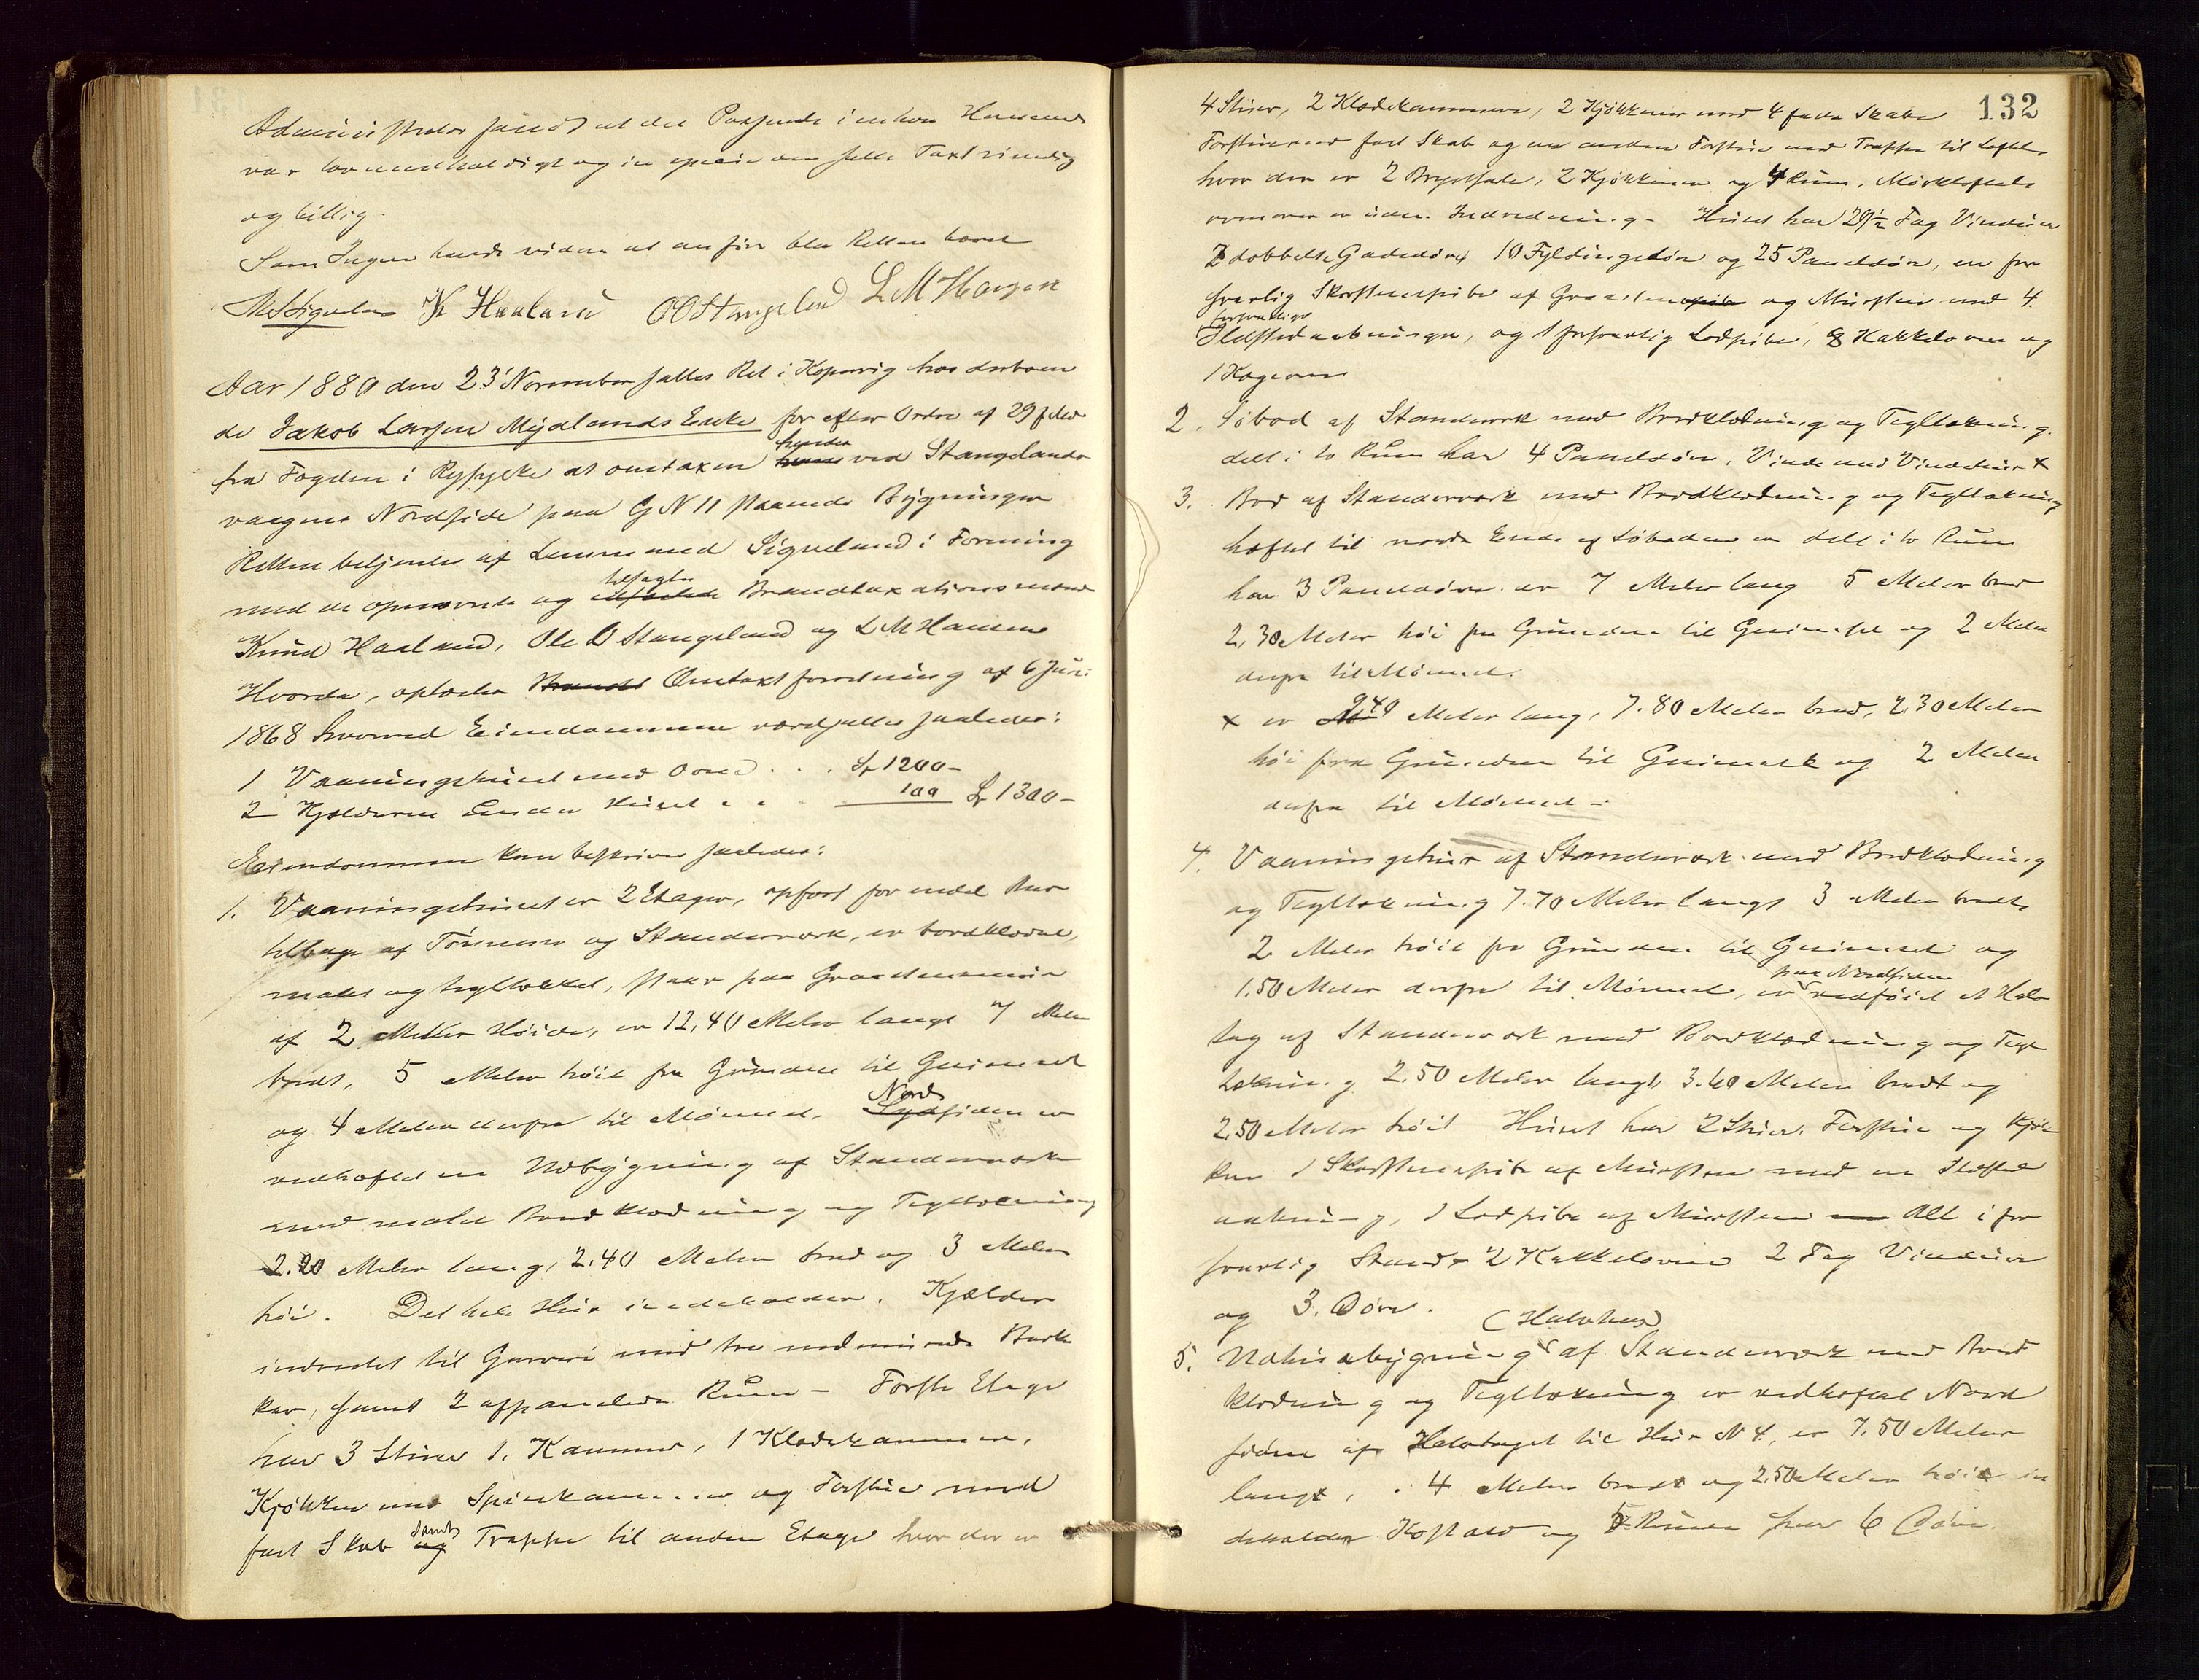 Administrator fandt at det Passerede i enhver Henseende
var lovmedholdigt og in specie den satte Taxt rimelig
og billig.
Som Ingen havde videre at anføre blev Retten hævet
K Haaland OO Stangeland L M Hansen
Aar 1880 den 23' November sattes Ret i Kopervig hos derboen
de Jakob Larsen Myelands Enke for efter Ordre af 29 f Md
fra Fogden i Ryfylke at omtaxere hendes ved Stangelands
vaagens Nordside paa G N 11 staaende Bygninger
Retten betjentes af Lensmand Sigveland i Forening
med de opnævnte og tilsagte Brandtaxationsmænd
Knud Haaland, Ole O Stangeland og L M Hansen
Hvorda, oplæstes Omtaxtforretning af 6 Juni
1868 hvorved Eiendommen værdsattes saaledes:
1 Vaaningshuset med Ovne . . . Sp 1200-
2 Kjælderen under Huset " " 100 Sp 1300-
Eiendommen kan beskrives saaledes:
1. Vaaningshuset er 2 Etager, opført for endel Aar
tilbage af Tømmer og Standerværk, er bordklædt,
malet og tegltækket, staar paa Graastensmuur
af 2 Meter Høide, er 12,40 Meter langt 7 Meter
bredt, 5 Meter høit fra Grunden til Gesimset
og 4 Meter derfra til Mønnet. Nordsiden er
vedhæftet en Udbygning af Standerværk
med malet Bordklædning og Tegltækning
2.20 Meter lang, 2.40 Meter bred og 3 Meter
høi. Det hele Hus indeholder. Kjælder
indredet til Garveri med tre nedmurede Bark
kar, samt 2 afpanelede Rum - Første Etage
har 3 Stuer 1. Kammer, 1 Klædekammer,
Kjøkken med Spisekammer og Forstue med
fast Skab samt Trappe til anden Etage hvor der er
132
4 Stuer, 2 Klædekammere, 2 Kjøkkener med 4 faste Skabe
Forstue med fast Skab og en anden Forstue med Trappe til Loftet,
hvor der er 2 Brystsale, 2 Kjøkkener og 4 Rum. Mørkloftet
ovenover er uden Indredning - Huset har 29½ Fag Vinduer
2 dobbelte Gadedøre 10 Fyldingsdøre og 25 Paneldøre, en for
svarlig Skorstenspibe af Graasten og Mursten med 4.
forsvarlige
Ildstedaabninger, og 1 forsvarlig Lodpibe, 8 Kakkelovne og
1 Kogeovn
2. Søbod af Standerværk med Bordklædning og Tegltækning.
delt i to Rum har 4 Paneldøre, Vinde med Vindehus x
3. Bod af Standerværk med Bordklædning og Tegltækning
hæftet til nordre Ende af Søboden er delt i to Rum
har 3 Paneldøre er 7 Meter lang 5 Meter bred
2,30 Meter høi fra Grunden til Gesimset og 2 Meter
derfra til Mønnet.
x er 9.40 Meter lang, 7.80 Meter bred, 2,30 Meter
høi fra Grunden til Gesimset og 2 Meter
derfra til Mønnet -
4. Vaaningshus af Standerværk med Bordklædning
og Tegltækning 7.70 Meter langt 3 Meter bredt
2 Meter høit fra Grunden til Gesimset og
1.50 Meter derfra til Mønnet, er paa Nordsiden vedføiet et Halv
tag af Standerværk med Bordklædning og Tegl
tækning. 2.50 Meter langt, 3.60 Meter bredt og
2,50 Meter høit Huset har 2 Stuer. Forstue og Kjøk
ken 1 Skorstenspibe af Mursten med en Ildsted
aabning, 1 Lodpibe af Mursten Alt i for
svarlig Stand 2 Kakkelovne 2 Fag Vinduer
og 3. Døre.
(Halvhus)
5. Udhusbygning af Standerværk med Bord
klædning og Tegltækning er vedhæftet Nord
siden af Halvtaget til Hus N 4, er 7.50 Meter
langt, 4 Meter bredt og 2,50 Meter høit in
deholder Kostald og 5 Rum har 6 Døre.